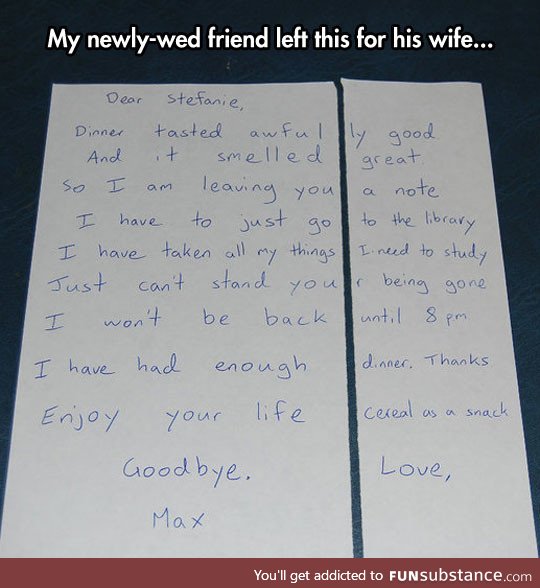 My newly-wed friend left this for his wife...
Dear Stefanie,
Dinner tasted awful ly good
And it smelled great.
So I am leaving you a note
I have to just go to the library
I have taken all my things I need to study
Just can't stand you r being gone
I won't be back until 8 pm
I have had enough dinner. Thanks
Enjoy your life cereal as a snack
Goodbye. Love,
Max
You'll get addicted to FUNsubstance.com